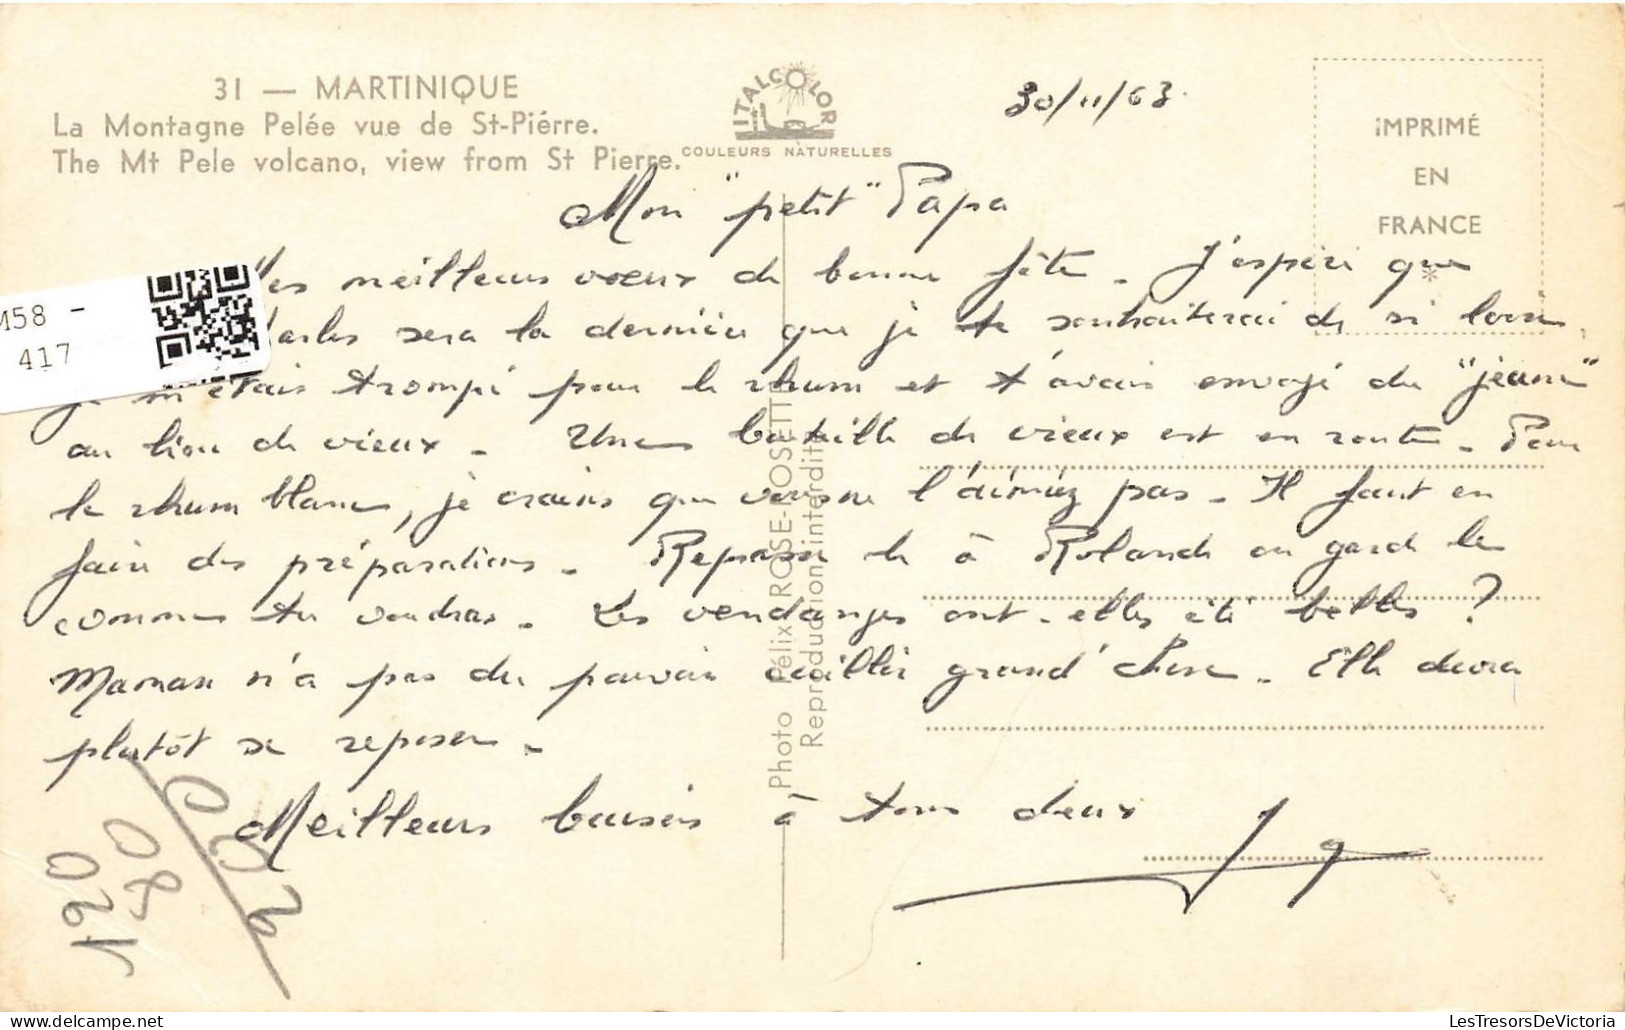 31 — MARTINIQUE
La Montagne Pelée vue de St-Piérre.
The Mt Pele volcano, view from St Pierre.
ITALCOLOR
COULEURS NATURELLES
30/11/63.
IMPRIMÉ
EN
FRANCE
*
Mon "petit" Papa
meilleurs voeux de bonne fête. J'espère que
sera la dernière que je te souhaiterai de si loin.
je m'étais trompé pour le rhum et t'avais envoyé du "jeune"
au lieu de vieux. Une bouteille de vieux est en route. Pour
le rhum blanc, je crains que vous ne l'aimiez pas. Il faut en
faire des préparations. Repasse le à Roland ou garde le
comme tu voudras. Les vendanges ont-elles été belles ?
Maman n'a pas du pouvoir cueillir grand'chose. Elle devra
plutôt se reposer.
Meilleurs baisers à tous deux
Photo Félix ROSE-ROSETTE
Reproduction interdite
M58 -
417
LesTresorsDeVictoria